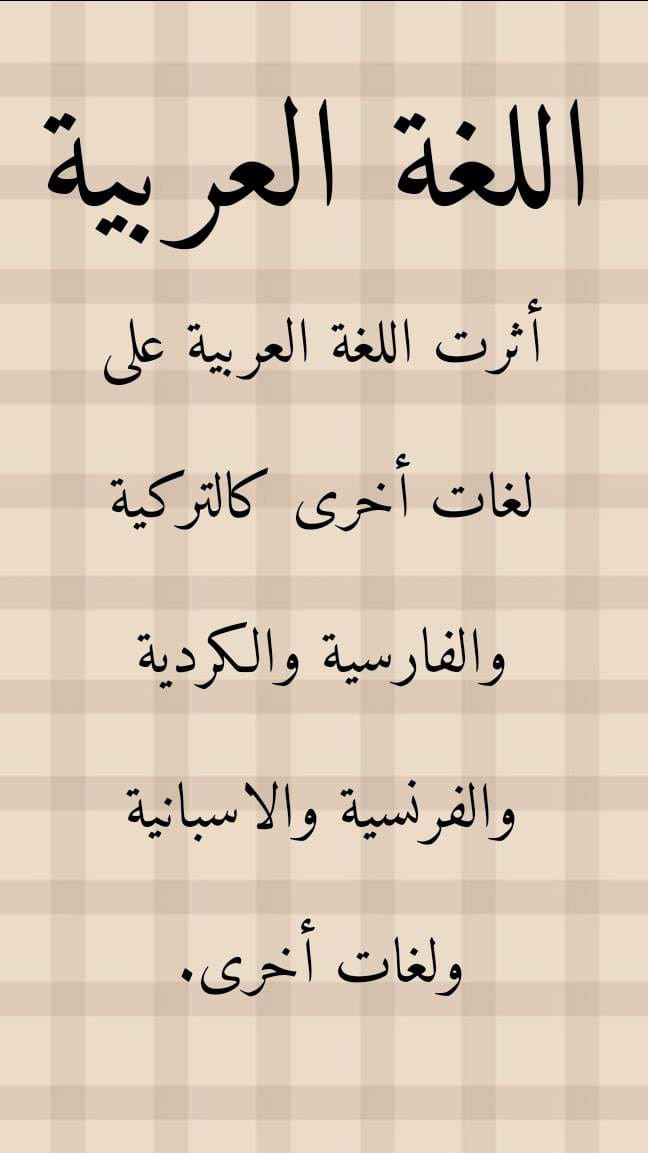 اللغة العربية
أثرت اللغة العربية على
لغات أخرى كالتركية
والفارسية والكردية
والفرنسية والاسبانية
ولغات أخرى.